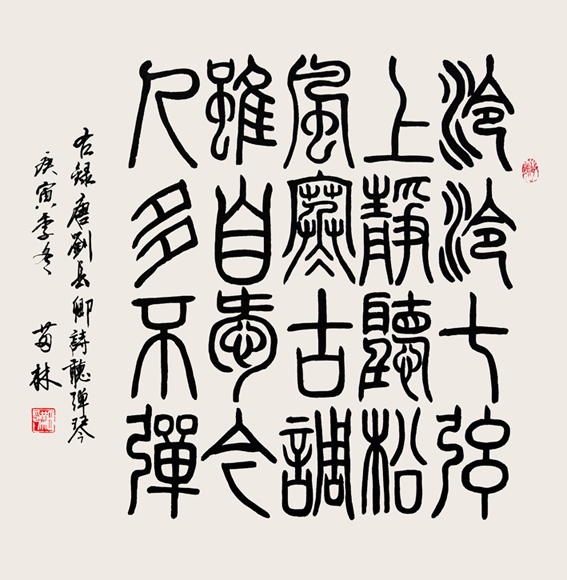 泠泠七弦
上静聽松
風寒古調
雖自愛今
人多不彈
右録唐劉長卿詩聽弹琴
庚寅季冬 茵林